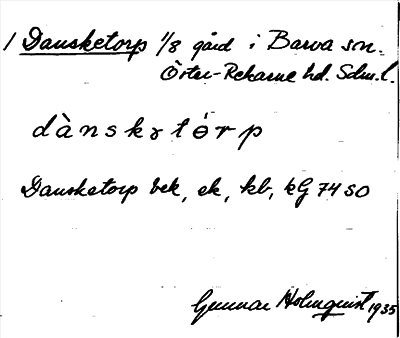 1 Dansketorp 1/8 gård i Barva sn.
Öster-Rekarne hd. Sdm.l.
dànskɤtórp
Dansketorp bek, ek, kb, kG 74 SO
Gunnar Holmquist 1935